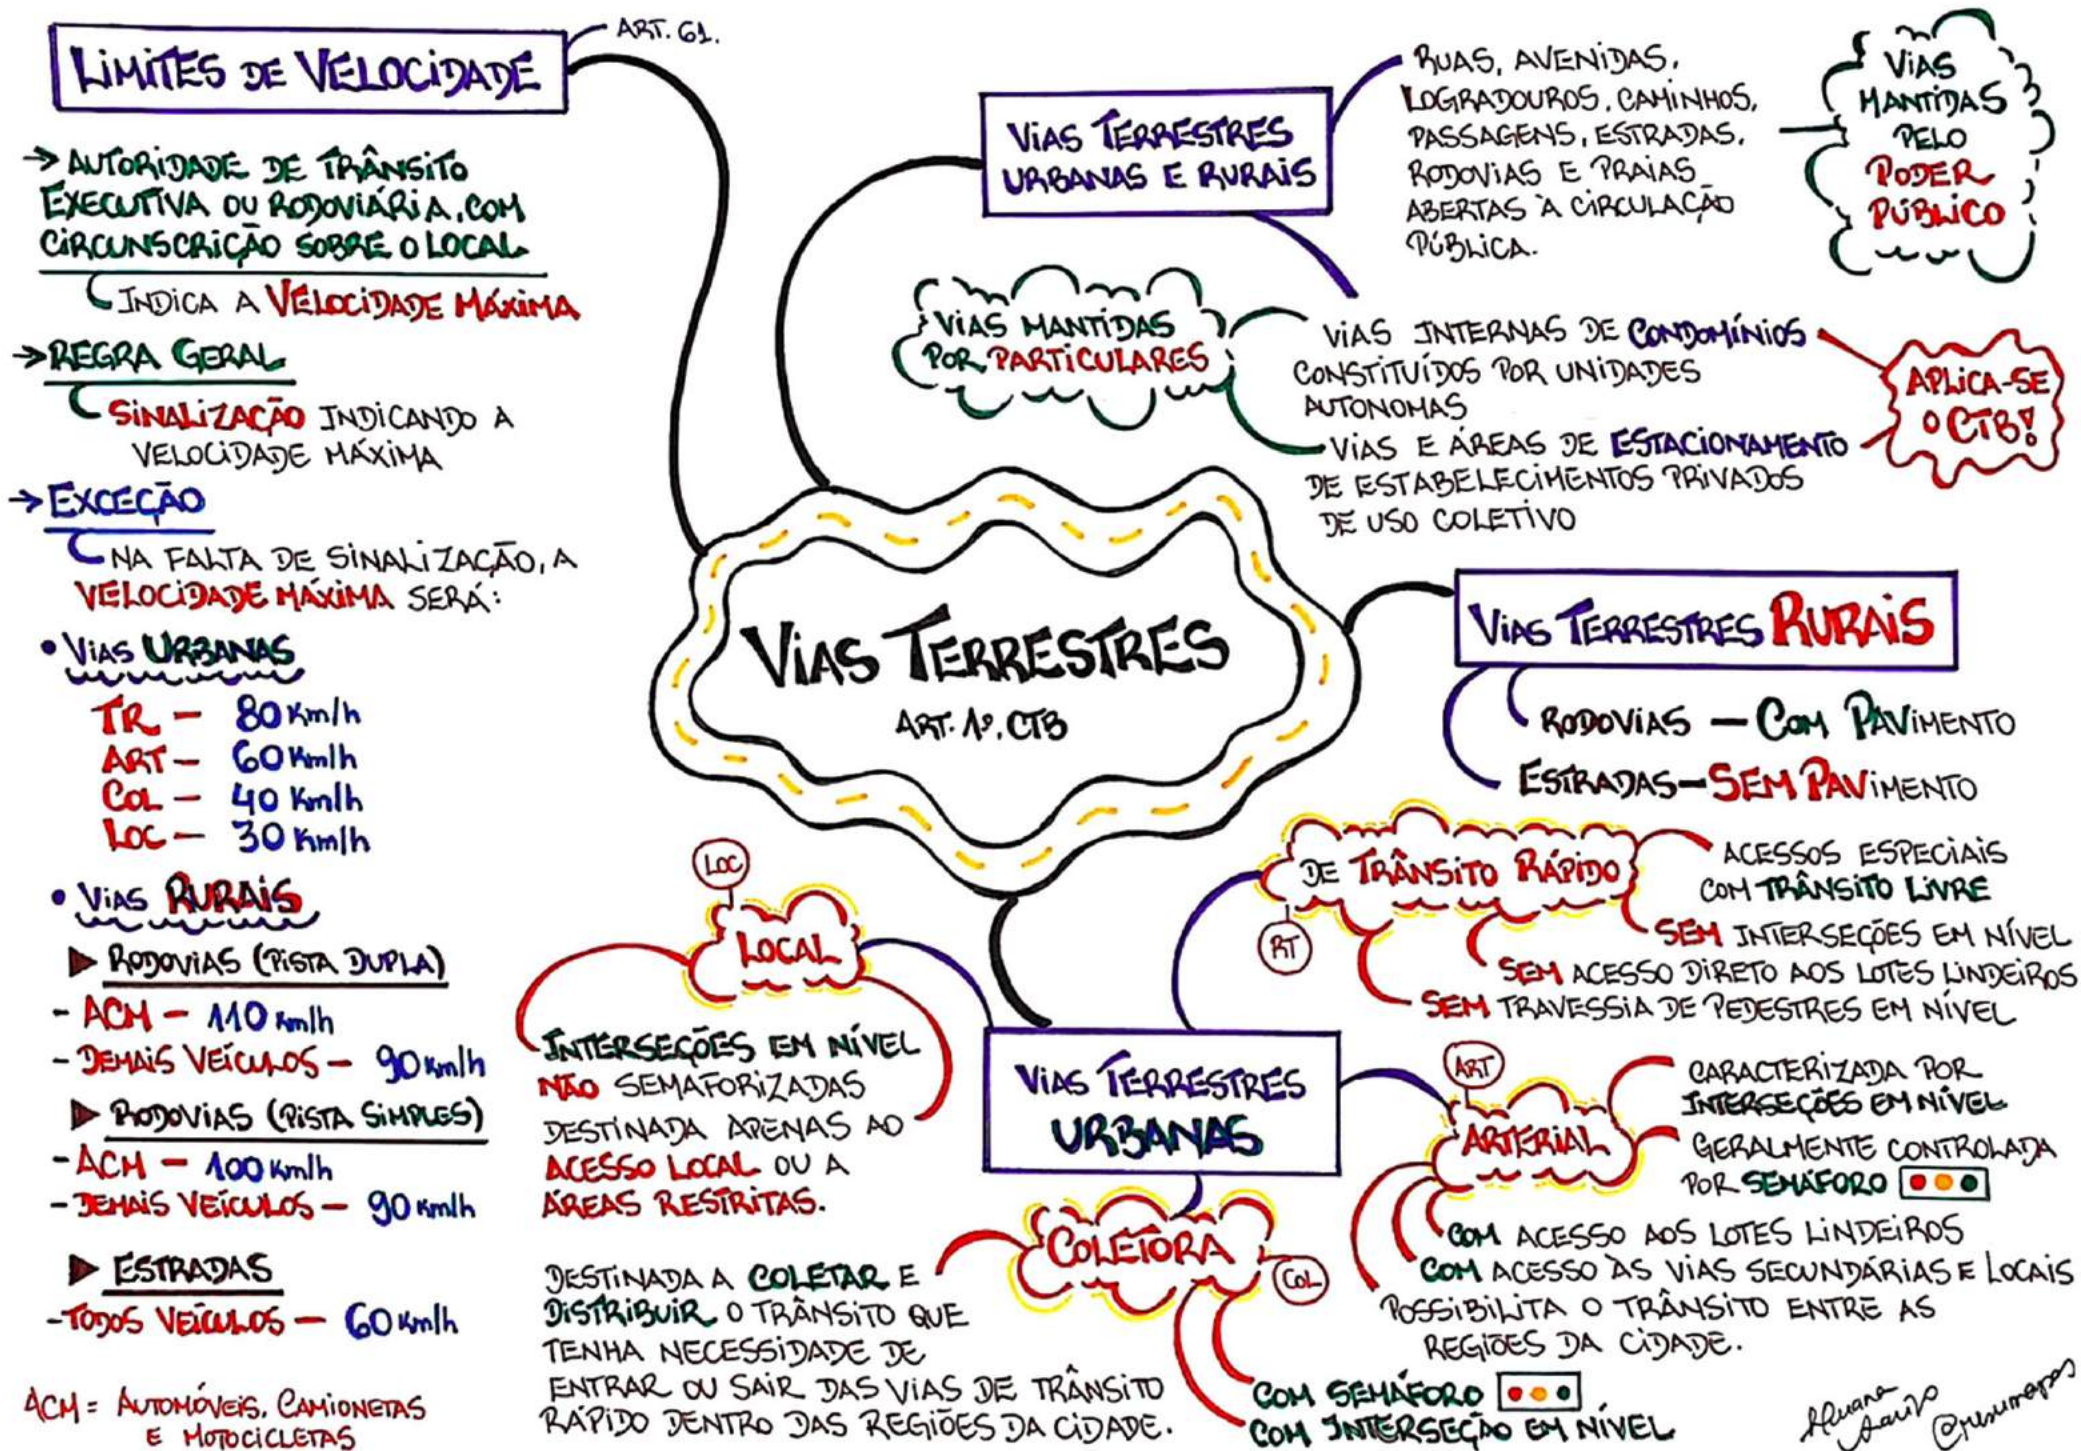 LIMITES DE VELOCIDADE
ART. 61.
→ AUTORIDADE DE TRÂNSITO
EXECUTIVA OU RODOVIÁRIA, COM
CIRCUNSCRIÇÃO SOBRE O LOCAL
INDICA A VELOCIDADE MÁXIMA
→ REGRA GERAL
SINALIZAÇÃO INDICANDO A
VELOCIDADE MÁXIMA
→ EXCEÇÃO
NA FALTA DE SINALIZAÇÃO, A
VELOCIDADE MÁXIMA SERÁ:
• VIAS URBANAS
TR — 80 Km/h
ART — 60 Km/h
COL — 40 Km/h
LOC — 30 Km/h
• VIAS RURAIS
▶ RODOVIAS (PISTA DUPLA)
- ACM — 110 Km/h
- DEMAIS VEÍCULOS — 90 Km/h
▶ RODOVIAS (PISTA SIMPLES)
- ACM — 100 Km/h
- DEMAIS VEÍCULOS — 90 Km/h
▶ ESTRADAS
- TODOS VEÍCULOS — 60 Km/h
ACM = AUTOMÓVEIS, CAMIONETAS
E MOTOCICLETAS
VIAS TERRESTRES
URBANAS E RURAIS
RUAS, AVENIDAS,
LOGRADOUROS, CAMINHOS,
PASSAGENS, ESTRADAS,
RODOVIAS E PRAIAS
ABERTAS À CIRCULAÇÃO
PÚBLICA.
VIAS
MANTIDAS
PELO
PODER
PÚBLICO
VIAS MANTIDAS
POR PARTICULARES
VIAS INTERNAS DE CONDOMÍNIOS
CONSTITUÍDOS POR UNIDADES
AUTONOMAS
VIAS E ÁREAS DE ESTACIONAMENTO
DE ESTABELECIMENTOS PRIVADOS
DE USO COLETIVO
APLICA-SE
O CTB!
VIAS TERRESTRES
ART. 1º, CTB
VIAS TERRESTRES RURAIS
RODOVIAS — COM PAVIMENTO
ESTRADAS — SEM PAVIMENTO
DE TRÂNSITO RÁPIDO
RT
ACESSOS ESPECIAIS
COM TRÂNSITO LIVRE
SEM INTERSEÇÕES EM NÍVEL
SEM ACESSO DIRETO AOS LOTES LINDEIROS
SEM TRAVESSIA DE PEDESTRES EM NÍVEL
LOC
LOCAL
INTERSEÇÕES EM NÍVEL
NÃO SEMAFORIZADAS
DESTINADA APENAS AO
ACESSO LOCAL OU A
ÁREAS RESTRITAS.
VIAS TERRESTRES
URBANAS
ART
ARTERIAL
CARACTERIZADA POR
INTERSEÇÕES EM NÍVEL
GERALMENTE CONTROLADA
POR SEMÁFORO
COM ACESSO AOS LOTES LINDEIROS
COM ACESSO ÀS VIAS SECUNDÁRIAS E LOCAIS
POSSIBILITA O TRÂNSITO ENTRE AS
REGIÕES DA CIDADE.
COLETORA
COL
DESTINADA A COLETAR E
DISTRIBUIR O TRÂNSITO QUE
TENHA NECESSIDADE DE
ENTRAR OU SAIR DAS VIAS DE TRÂNSITO
RÁPIDO DENTRO DAS REGIÕES DA CIDADE.
COM SEMÁFORO
COM INTERSEÇÃO EM NÍVEL
@resumapas